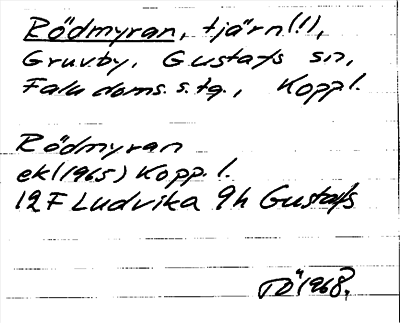 Rödmyran, tjärn(!),
Gruvby, Gustafs sn,
Falu doms. s. tg., Koppl.
Rödmyran
ek(1965) Kopp. l.
12F Ludvika 9h Gustafs
TÖ 1968.